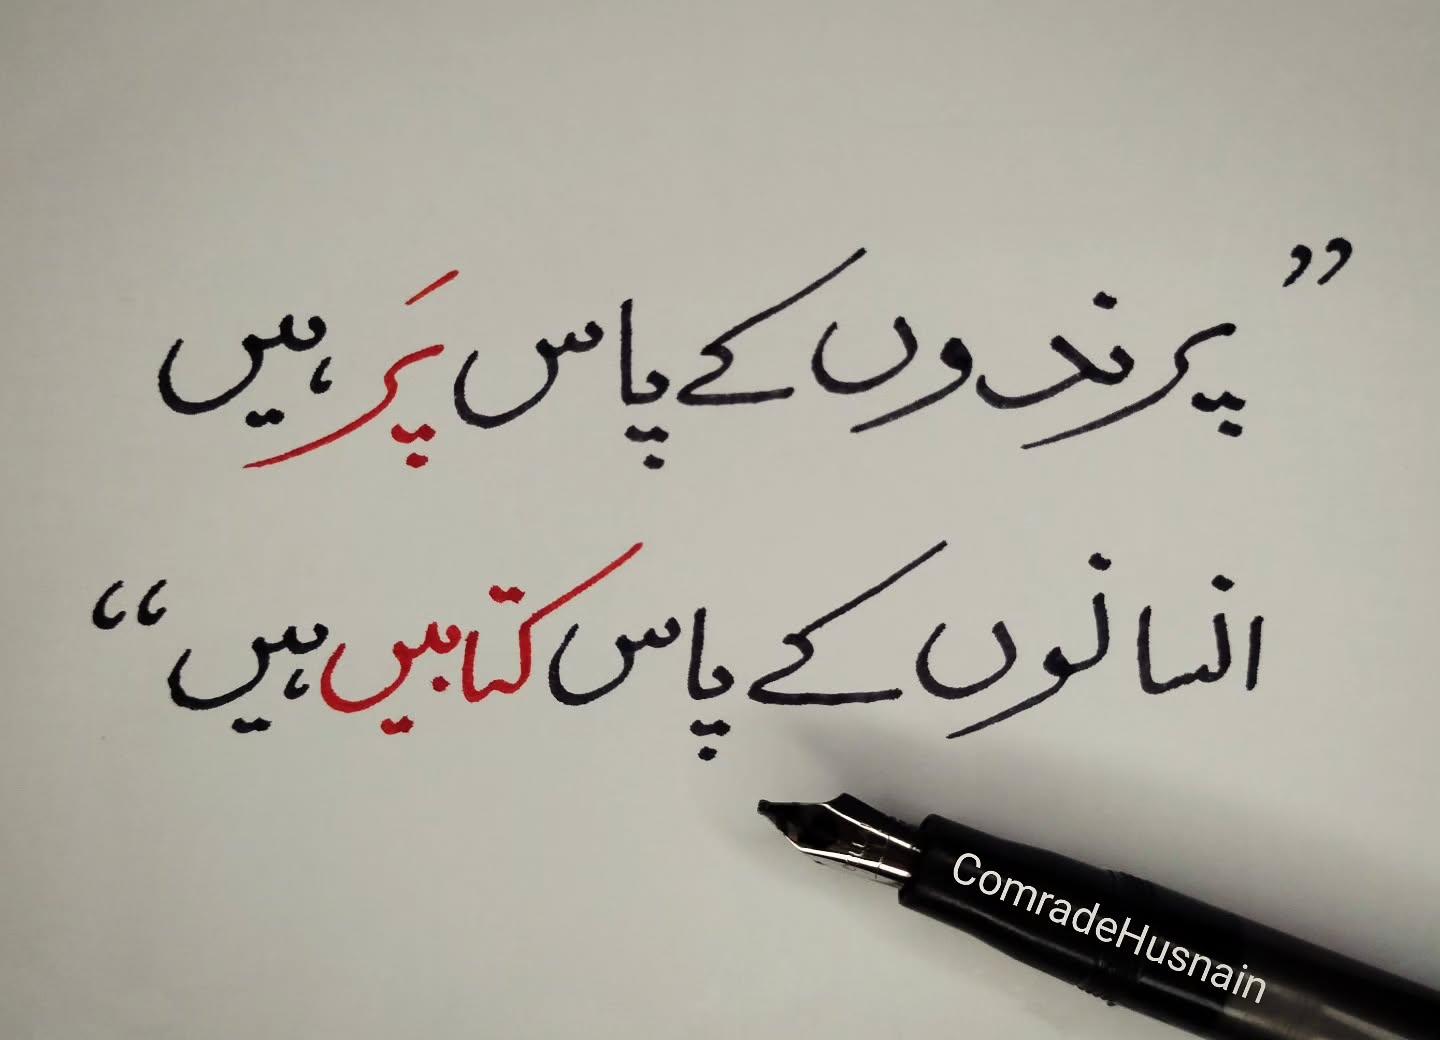 ”پرندوں کے پاس پَر ہیں
انسانوں کے پاس کتابیں ہیں“
ComradeHusnain